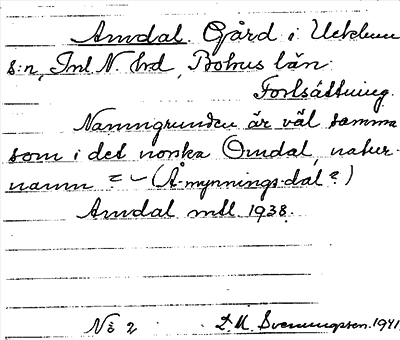 Amdal. Gård i Ucklum
s:n, Inl. N. hd, Bohus län.
Fortsättning.
Namngrunden är väl samma
som i det norska Omdal, natur-
namn = ~ (Å-mynnings-dal?)
Amdal mtl. 1938.
No 2 D. M. Svenungsson. 1941